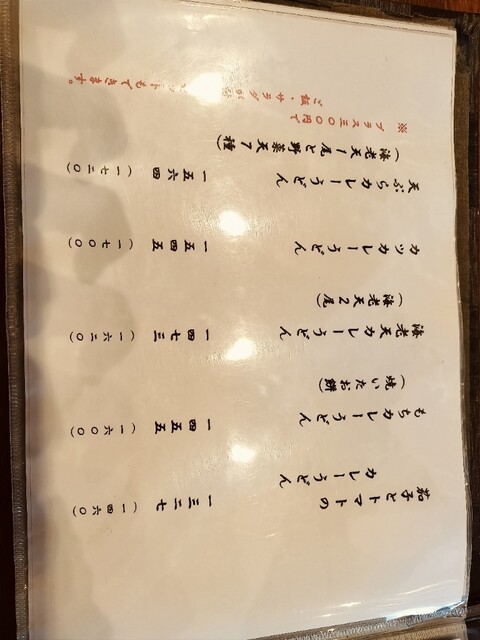 茄子とトマトの
カレーうどん 一三二七 (一四六〇)
もちカレーうどん 一四五五 (一六〇〇)
(焼いたお餅)
海老天カレーうどん 一四七三 (一六二〇)
(海老天2尾)
カツカレーうどん 一五四五 (一七〇〇)
天ぷらカレーうどん 一五六四 (一七二〇)
(海老天1尾と野菜天7種)
※プラス三〇〇円で
ご飯・サラダが
ットもできます。